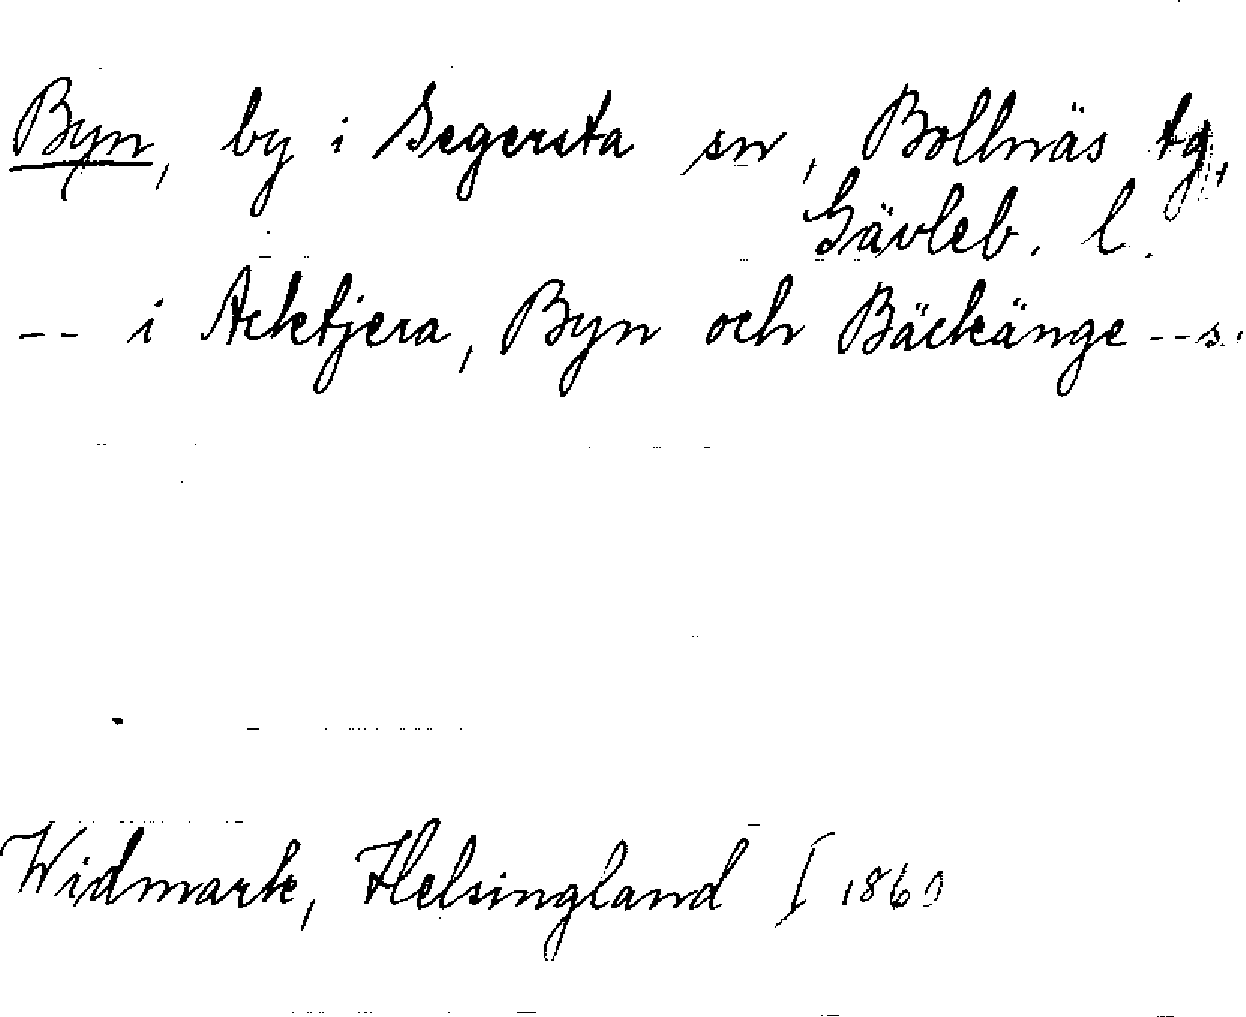 Byn, by i Segersta sn, Bollnäs tg,
Gävleb. l.
-- i Acktjera, Byn och Bäckänge -- s.
Widmark, Helsingland I 1860